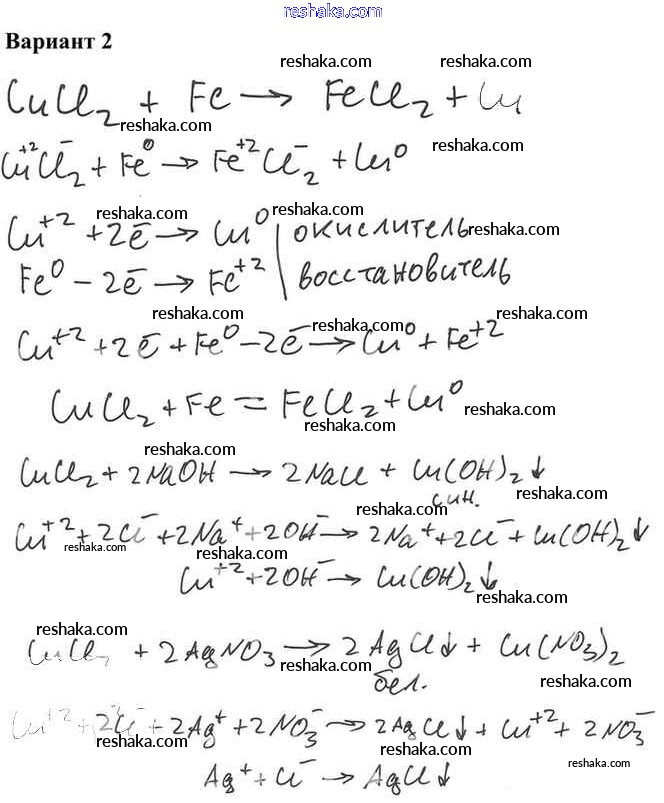 reshaka.com
Вариант 2
reshaka.com reshaka.com
CuCl₂ + Fe → FeCl₂ + Cu
reshaka.com reshaka.com
Cu⁺²Cl⁻₂ + Fe⁰ → Fe⁺²Cl⁻₂ + Cu⁰
reshaka.com reshaka.com
Cu⁺² + 2ē → Cu⁰ | окислитель
reshaka.com
Fe⁰ - 2ē → Fe⁺² | восстановитель
reshaka.com reshaka.com
reshaka.com
Cu⁺² + 2ē + Fe⁰ - 2ē → Cu⁰ + Fe⁺²
CuCl₂ + Fe = FeCl₂ + Cu⁰
reshaka.com
reshaka.com
reshaka.com
CuCl₂ + 2NaOH → 2NaCl + Cu(OH)₂↓
reshaka.com
син.
reshaka.com
Cu⁺² + 2Cl⁻ + 2Na⁺ + 2OH⁻ → 2Na⁺ + 2Cl⁻ + Cu(OH)₂↓
reshaka.com reshaka.com
Cu⁺² + 2OH⁻ → Cu(OH)₂↓
reshaka.com
reshaka.com
CuCl₂ + 2AgNO₃ → 2AgCl↓ + Cu(NO₃)₂
reshaka.com
бел.
reshaka.com
Cu⁺² + 2Cl⁻ + 2Ag⁺ + 2NO₃⁻ → 2AgCl↓ + Cu⁺² + 2NO₃⁻
reshaka.com reshaka.com
reshaka.com
Ag⁺ + Cl⁻ → AgCl↓